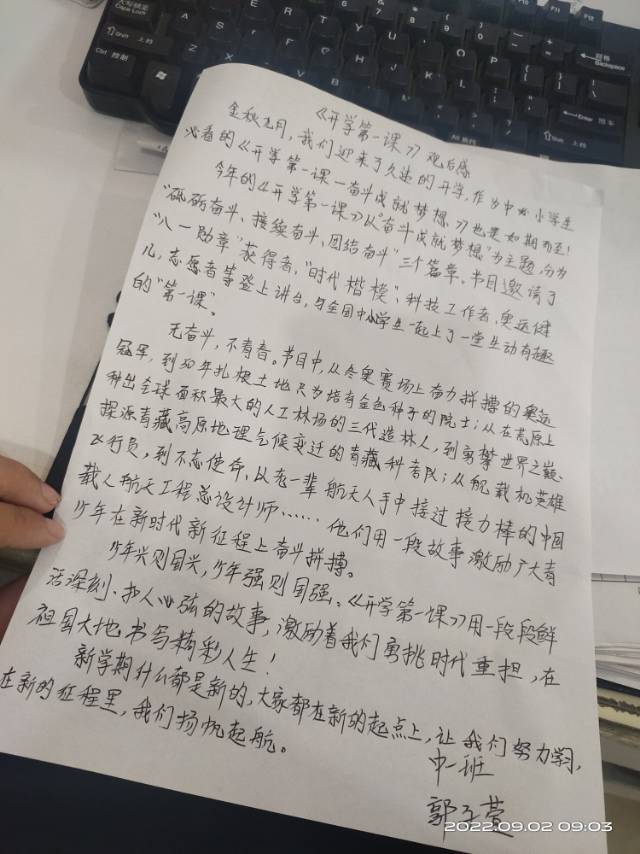 《开学第一课》观后感
金秋九月，我们迎来了久违的开学，作为中小学生
必看的《开学第一课—奋斗成就梦想》也是如期而至！
今年的《开学第一课》以"奋斗成就梦想"为主题，分为
"砥砺奋斗、接续奋斗、团结奋斗"三个篇章。节目邀请了
"八一勋章"获得者，"时代楷模"、科技工作者，奥运健
儿，志愿者等登上讲台，与全国中小学生一起上了一堂生动有趣
的"第一课"。
无奋斗，不青春。节目中，从冬奥赛场上奋力拼搏的奥运
冠军，到50年扎根土地只为培育金色种子的院士；从在荒原上
种出全球面积最大的人工林场的三代造林人，到勇攀世界之巅、
探源青藏高原地理气候变迁的青藏科考队；从舰载机英雄
飞行员，到不忘使命、从老一辈航天人手中接过接力棒的中国
载人航天工程总设计师……他们用一段故事激励广大青
少年在新时代新征程上奋斗拼搏。
少年兴则国兴，少年强则国强。《开学第一课》用一段段鲜
活深刻、扣人心弦的故事，激励着我们勇挑时代重担，在
祖国大地书写精彩人生！
新学期什么都是新的，大家都在新的起点上，让我们努力学习，
在新的征程里，我们扬帆起航。
中一班
郭子萱
2022.09.02 09:03